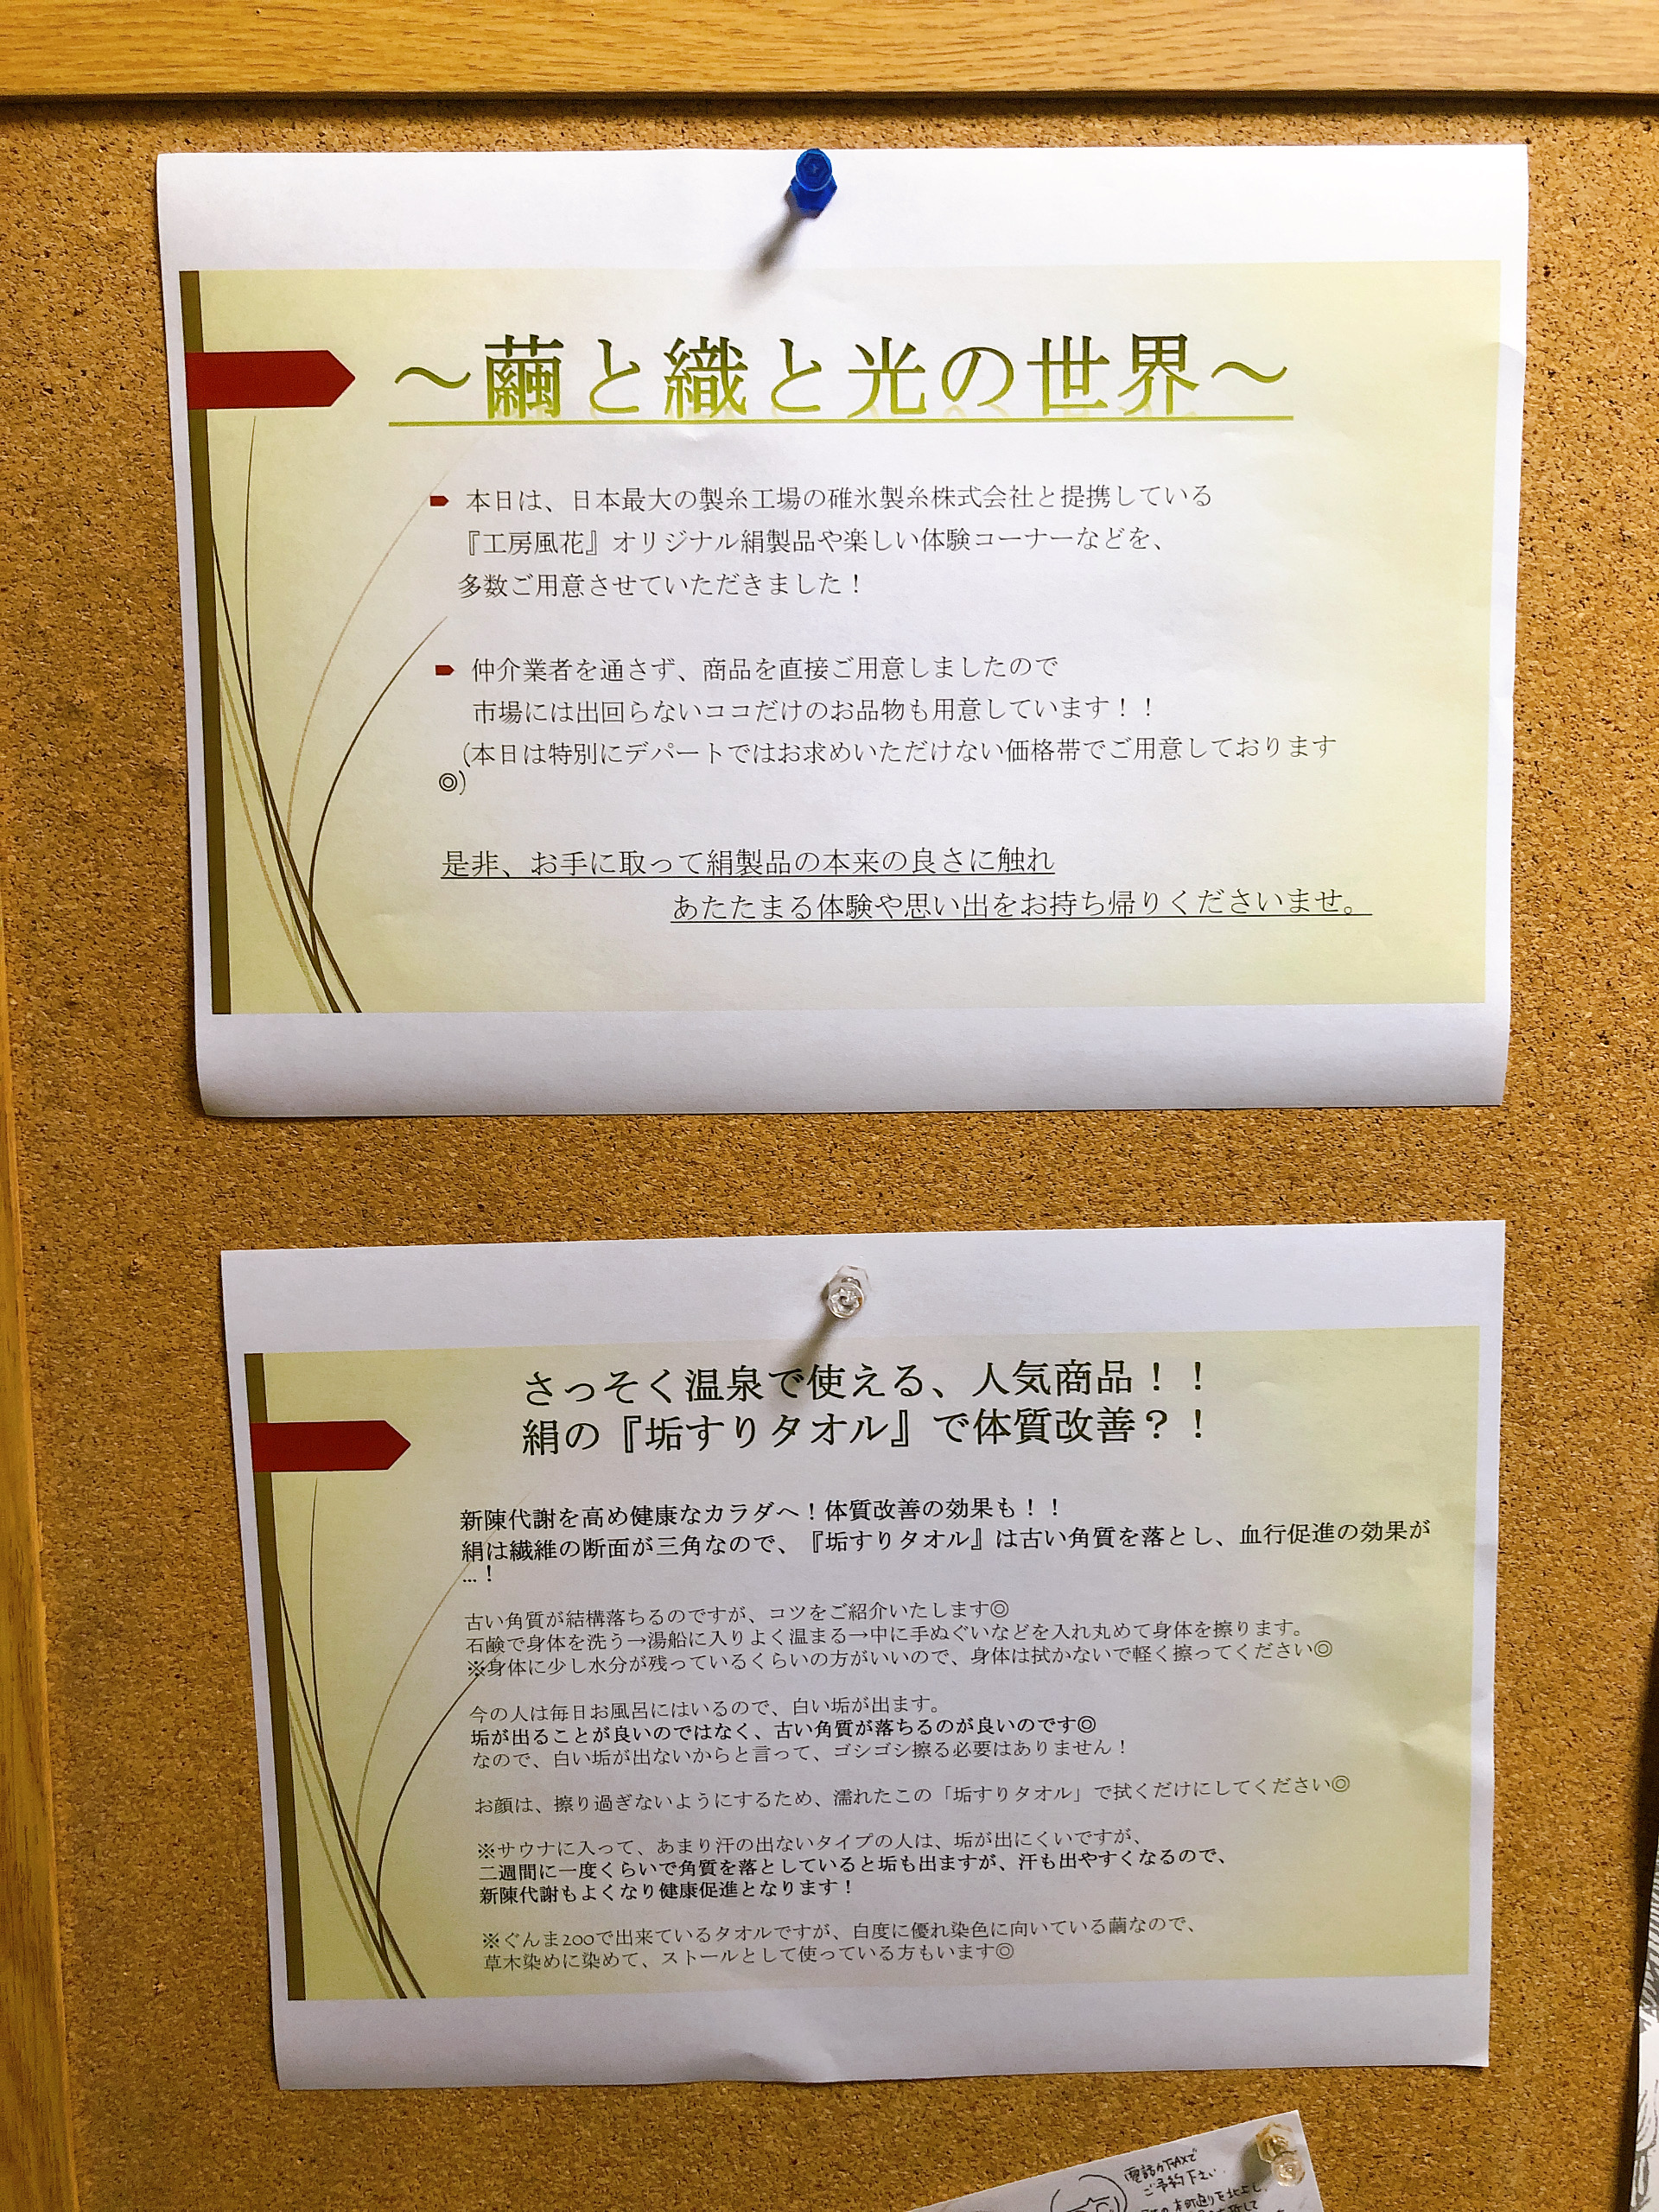 ～繭と織と光の世界～
本日は、日本最大の製糸工場の碓氷製糸株式会社と提携している
『工房風花』オリジナル絹製品や楽しい体験コーナーなどを、
多数ご用意させていただきました！
仲介業者を通さず、商品を直接ご用意しましたので
市場には出回らないココだけのお品物も用意しています！！
(本日は特別にデパートではお求めいただけない価格帯でご用意しております
◎)
是非、お手に取って絹製品の本来の良さに触れ
あたたまる体験や思い出をお持ち帰りくださいませ。
さっそく温泉で使える、人気商品！！
絹の『垢すりタオル』で体質改善？！
新陳代謝を高め健康なカラダへ！体質改善の効果も！！
絹は繊維の断面が三角なので、『垢すりタオル』は古い角質を落とし、血行促進の効果が
…！
古い角質が結構落ちるのですが、コツをご紹介いたします◎
石鹸で身体を洗う→湯船に入りよく温まる→中に手ぬぐいなどを入れ丸めて身体を擦ります。
※身体に少し水分が残っているくらいの方がいいので、身体は拭かないで軽く擦ってください◎
今の人は毎日お風呂にはいるので、白い垢が出ます。
垢が出ることが良いのではなく、古い角質が落ちるのが良いのです◎
なので、白い垢が出ないからと言って、ゴシゴシ擦る必要はありません！
お顔は、擦り過ぎないようにするため、濡れたこの「垢すりタオル」で拭くだけにしてください◎
※サウナに入って、あまり汗の出ないタイプの人は、垢が出にくいですが、
二週間に一度くらいで角質を落としていると垢も出ますが、汗も出やすくなるので、
新陳代謝もよくなり健康促進となります！
※ぐんま200で出来ているタオルですが、白度に優れ染色に向いている繭なので、
草木染めに染めて、ストールとして使っている方もいます◎
電話かFAXで
ご予約下さい